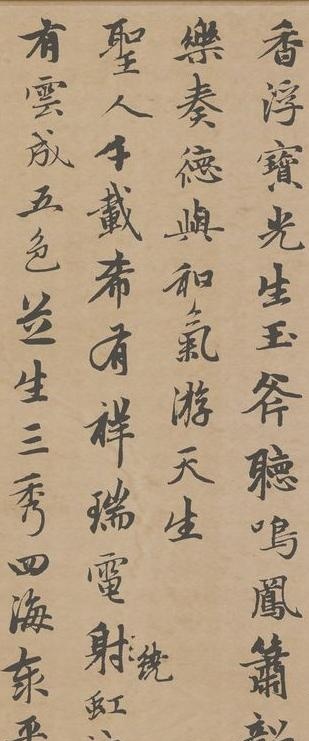 香浮寶光生玉斧聽鳴鳳簫韶
樂奏德與和氣游天生
聖人千載希有祥瑞電射虹
繞
有雲成五色芝生三秀四海泰平